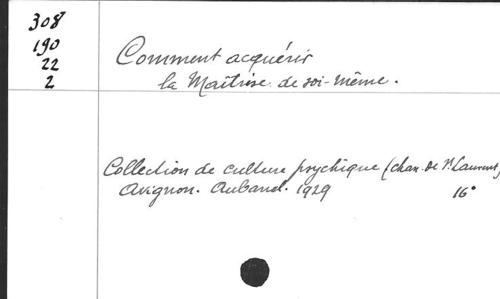 308
190
22
2
Comment acquérir
la Maîtrise de soi-même.
Collection de culture psychique (chan. de St Laurent)
Avignon. Aubanel. 1929
16°